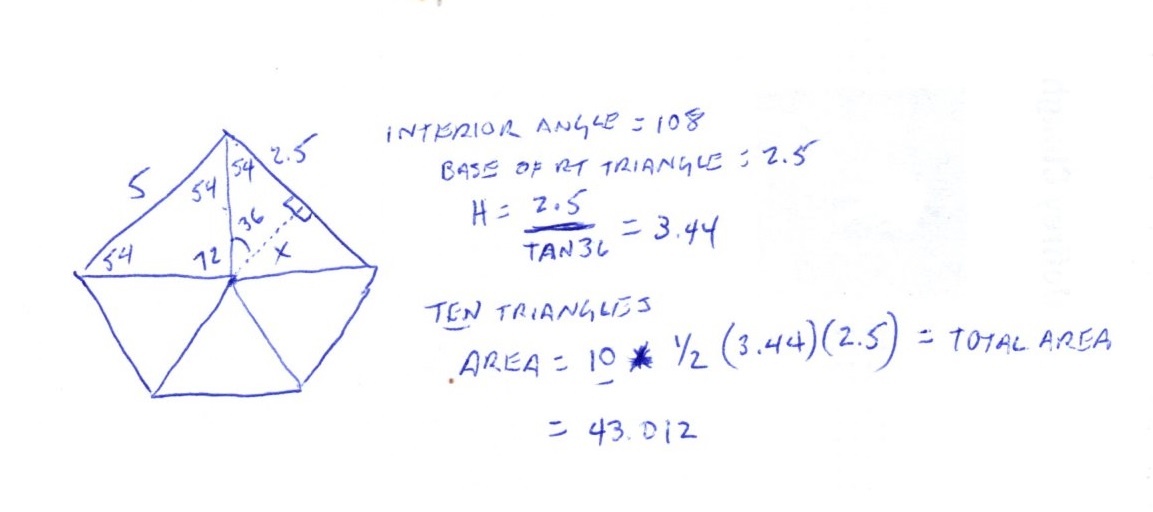 INTERIOR ANGLE = 108
BASE OF RT TRIANGLE = 2.5
H = 2.5 / TAN36 = 3.44
TEN TRIANGLES
AREA = 10 * 1/2 (3.44)(2.5) = TOTAL AREA
= 43.012
5
2.5
54
54
36
54
72
x